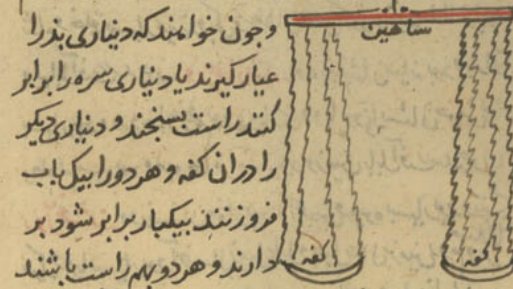 شاهین
وجون خواهند که دیناری بذر را
عیار کیرند یا دیناری سره را برابر
کنند راست بسنجند و دیناری دیکر
را در ان کفه و هر دو را بیک باب
فرو زنند بیکبار برابر شود بر
دارند و هر دو بهم راست باشند
کفه
کفه